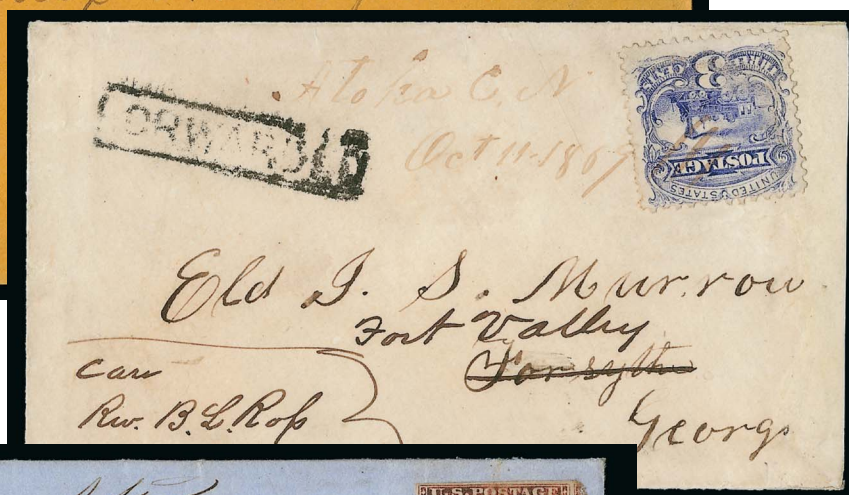 FORWARDED
Atoka C. N.
Oct 11. 1869
UNITED STATES
POSTAGE
3
Eld J. S. Murrow
Fort Valley
Forsythe
Georgi
Care
Rev. B. L. Ross
U.S. POSTAGE